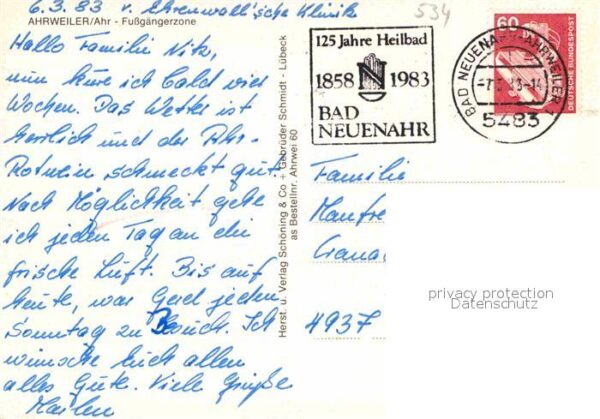 6.3.83 v. Ehrenwall'sche Klinik
534
AHRWEILER/Ahr - Fußgängerzone
Hallo Familie Nitz,
nun kure ich bald vier
Wochen. Das Wetter ist
herrlich und der Ahr-
Rotwein schmeckt gut.
Nach Möglichkeit gehe
ich jeden Tag an die
frische Luft. Bis auf
heute, war Gerd jeden
Sonntag zu Besuch. Ich
wünsche Euch allen
alles Gute. Viele Grüße
Herst. u. Verlag Schöning & Co + Gebrüder Schmidt - Lübeck
as Bestellnr. Ahrwei 60
125 Jahre Heilbad
1858 1983
BAD
NEUENAHR
BAD NEUENAHR-AHRWEILER 1
5483
60
DEUTSCHE BUNDESPOST
Familie
Manfre
4937
privacy protection
Datenschutz